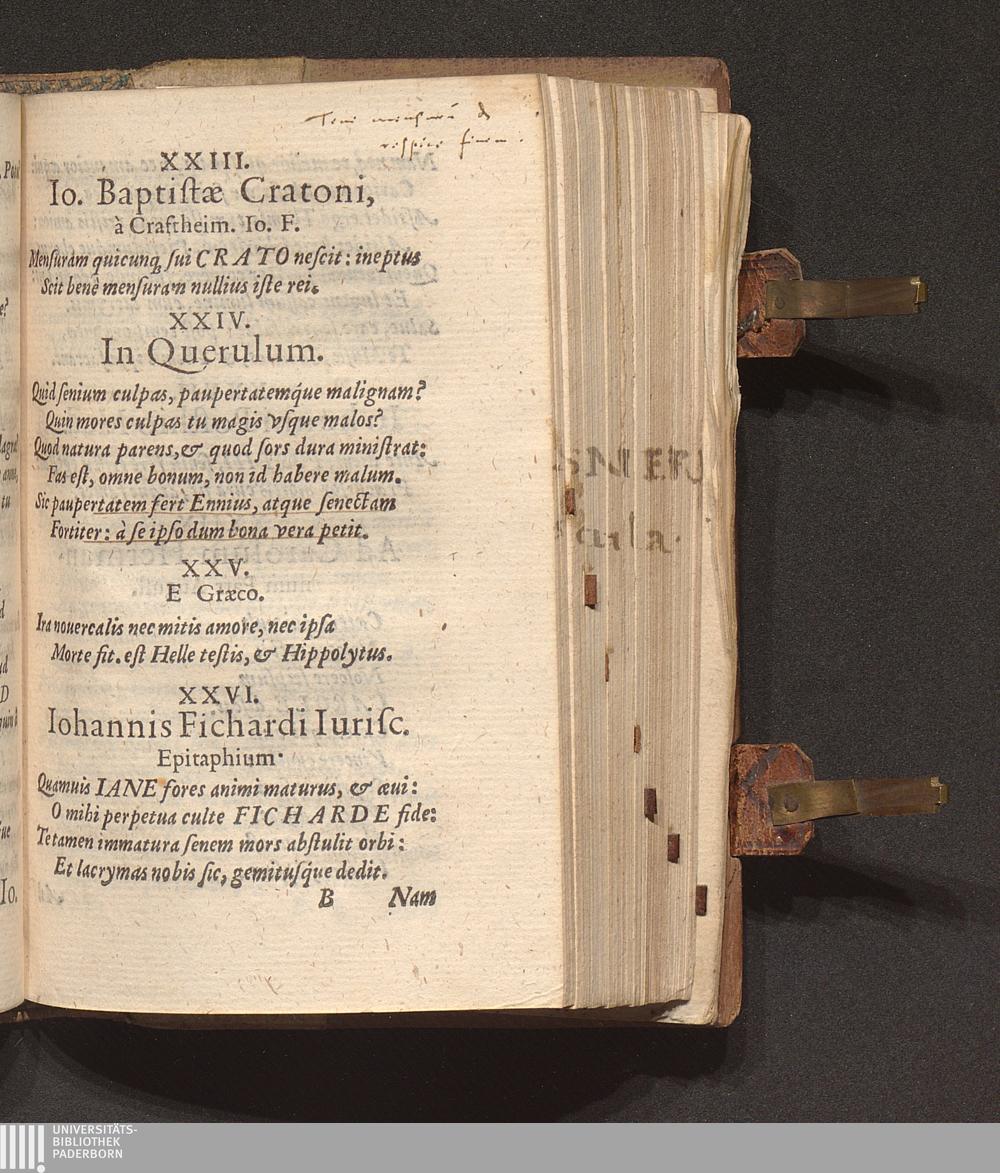 Teni mensuram &
respice finem.
XXIII.
Io. Baptiſtæ Cratoni,
à Craftheim. Io. F.
Menſuram quicunq; ſui CRATO neſcit: ineptus
Scit benè menſuram nullius iſte rei.
XXIV.
In Querulum.
Quid ſenium culpas, paupertatemq́ue malignam?
Quin mores culpas tu magis vſque malos?
Quod natura parens, & quod ſors dura miniſtrat:
Fas eſt, omne bonum, non id habere malum.
Sic paupertatem fert Ennius, atque ſenectam
Fortiter: à ſe ipſo dum bona vera petit.
XXV.
E Græco.
Ira nouercalis nec mitis amore, nec ipſa
Morte fit. eſt Helle teſtis, & Hippolytus.
XXVI.
Iohannis Fichardi Iuriſc.
Epitaphium.
Quamuis IANE fores animi maturus, & æui:
O mihi perpetua culte FICHARDE fide:
Te tamen immatura ſenem mors abſtulit orbi:
Et lacrymas nobis ſic, gemituſq́ue dedit.
B Nam
UNIVERSITÄTS-
BIBLIOTHEK
PADERBORN